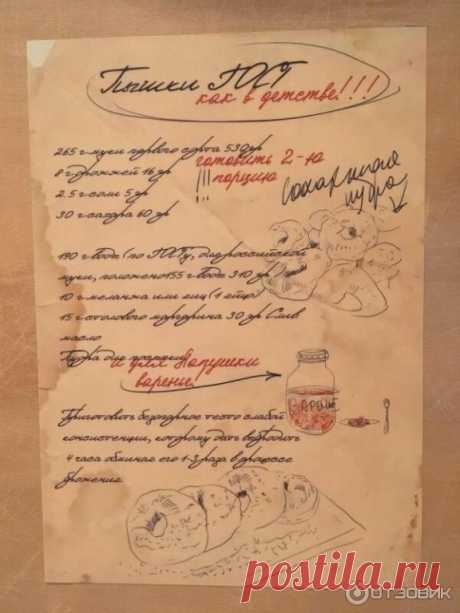 Пышки ГОСТ
как в детстве!!!
265 г муки первого сорта 530гр
8 г дрожжей 16 гр
2.5 г соли 5 гр
30 г сахара 60 гр
готовить 2-ю
!!! порцию
Сахарная
пудра
190 г воды (по ГОСТу, для российской
муки, положено 155 г воды 310 гр)
10 г меланжа или яиц (1 яйцо)
15 г столового маргарина 30 гр Слив
масло
Пудра для
и для Лапушки
варенье!
ВАРЕНЬЕ
Приготовить безопарное тесто слабой
консистенции, которому дать выбродить
4 часа обминая его 1-3 раза в процессе
брожения
postila.ru
ОТЗОВИК